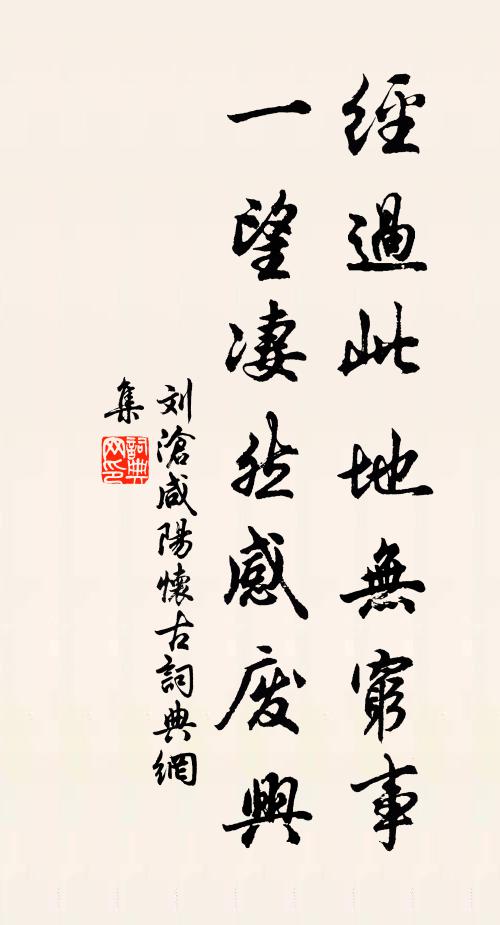 經過此地無窮事
一望凄然感废興
刘滄咸陽懷古詞典網
集
詞典网印